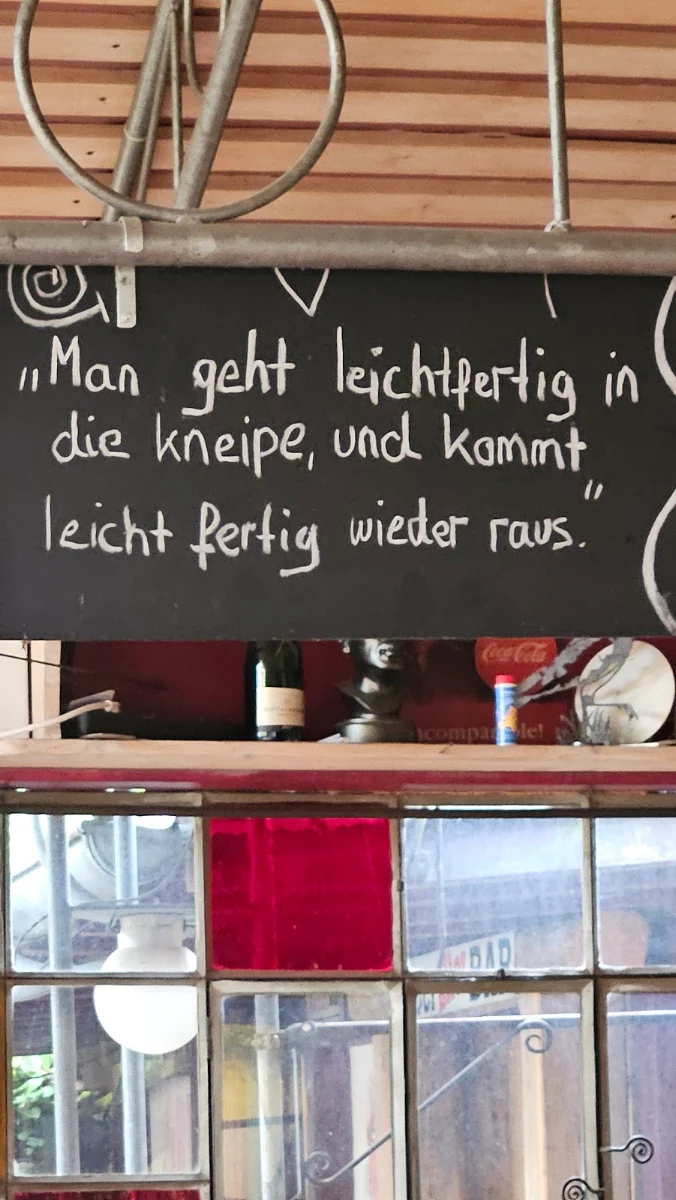 „Man geht leichtfertig in
die kneipe, und kommt
leicht fertig wieder raus."
Coca-Cola
BAR